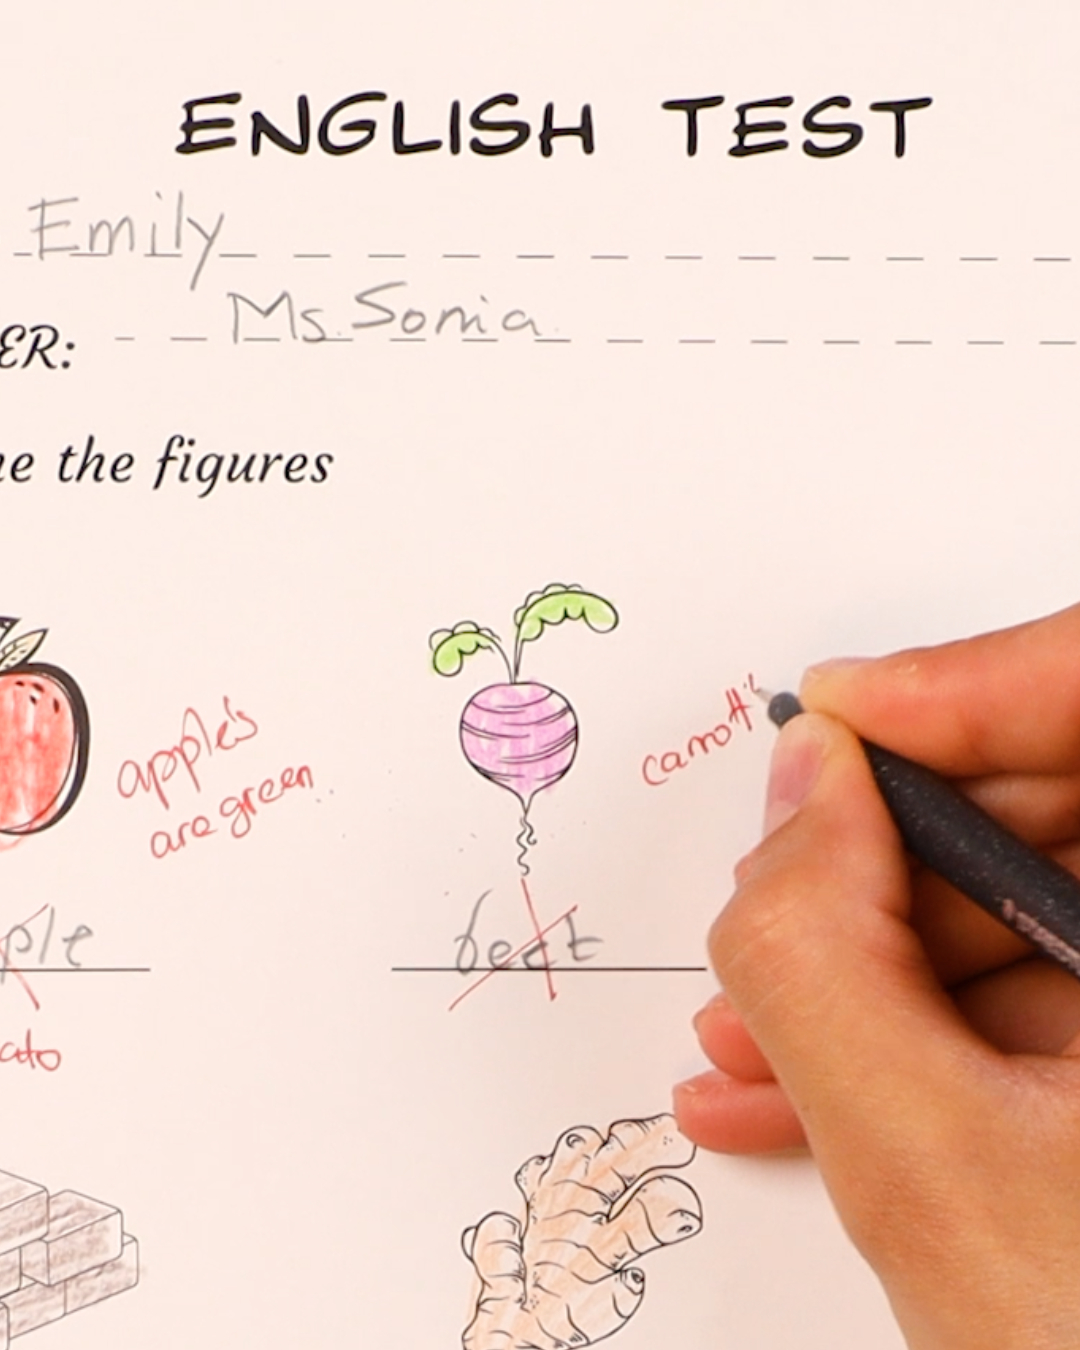 ENGLISH TEST
Emily
ER: Ms. Sonia
e the figures
apple's
are green..
carrott's
ple
beet
ato